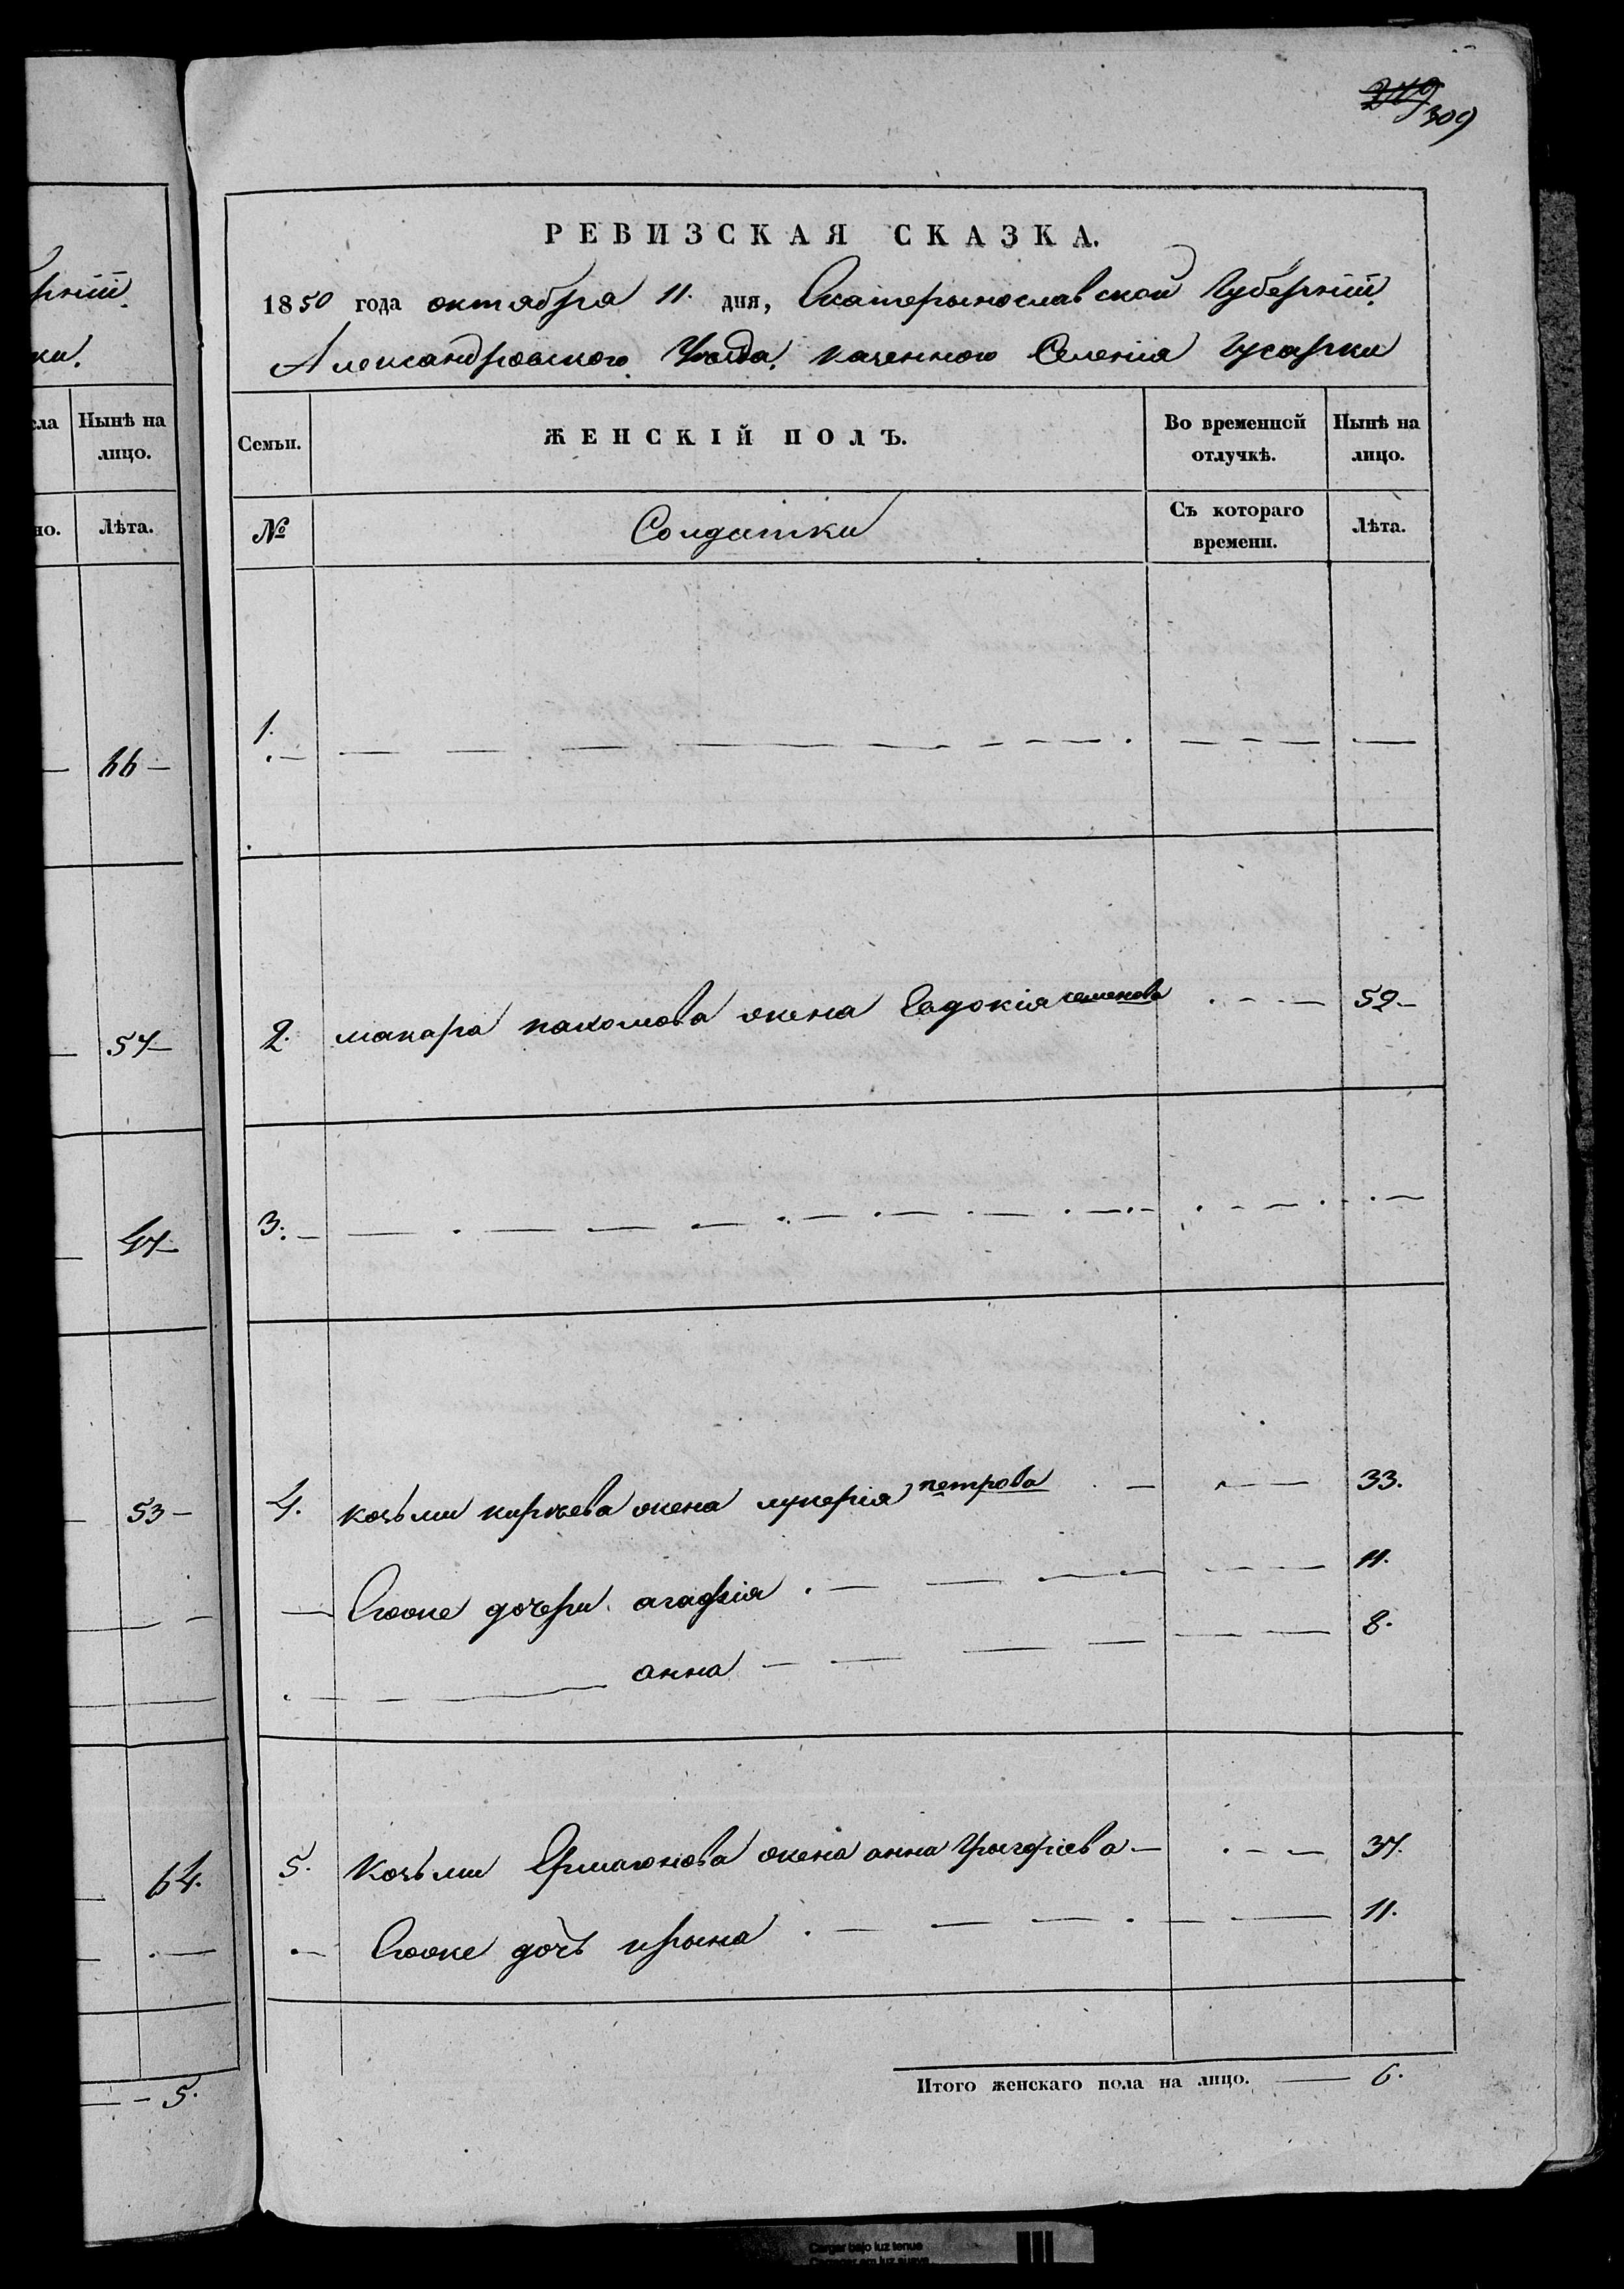 249
309
рніи.
ки.
сла Нынѣ на лицо.
но. Лѣта.
66
57
47
53
64.
5.
РЕВИЗСКАЯ СКАЗКА.
1850 года октября 11. дня, Екатерынославской Губерніи.
Александровского Уѣзда. казенного Селенія Гусарки
Семьи. ЖЕНСКІЙ ПОЛЪ. Во временной отлучкѣ. Нынѣ на лицо.
№ Солдатки Съ котораго времени. Лѣта.
1.
2. макара пахомова жена Евдокія семенова 52
3.
4. козьми кирѣева жена лукерія петрова 33.
Егоже дочери агафія 11.
анна 8.
5. Козьми жена анна Грыгоріева 37.
Егоже дочь ирына 11.
Итого женскаго пола на лицо. 6.
Cargar bajo luz tenue